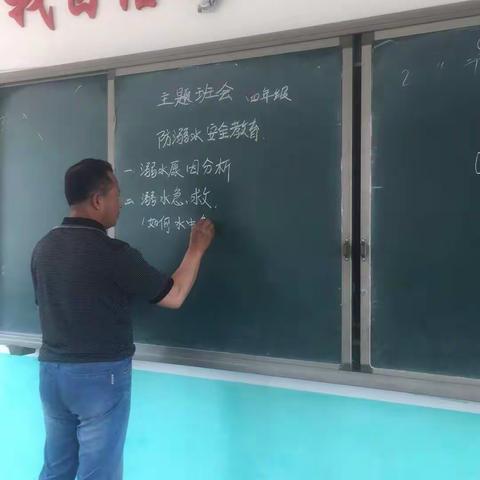 我自信
主题班会 四年级
防溺水安全教育.
一 溺水原因分析
二 溺水急救.
(如何水中
2